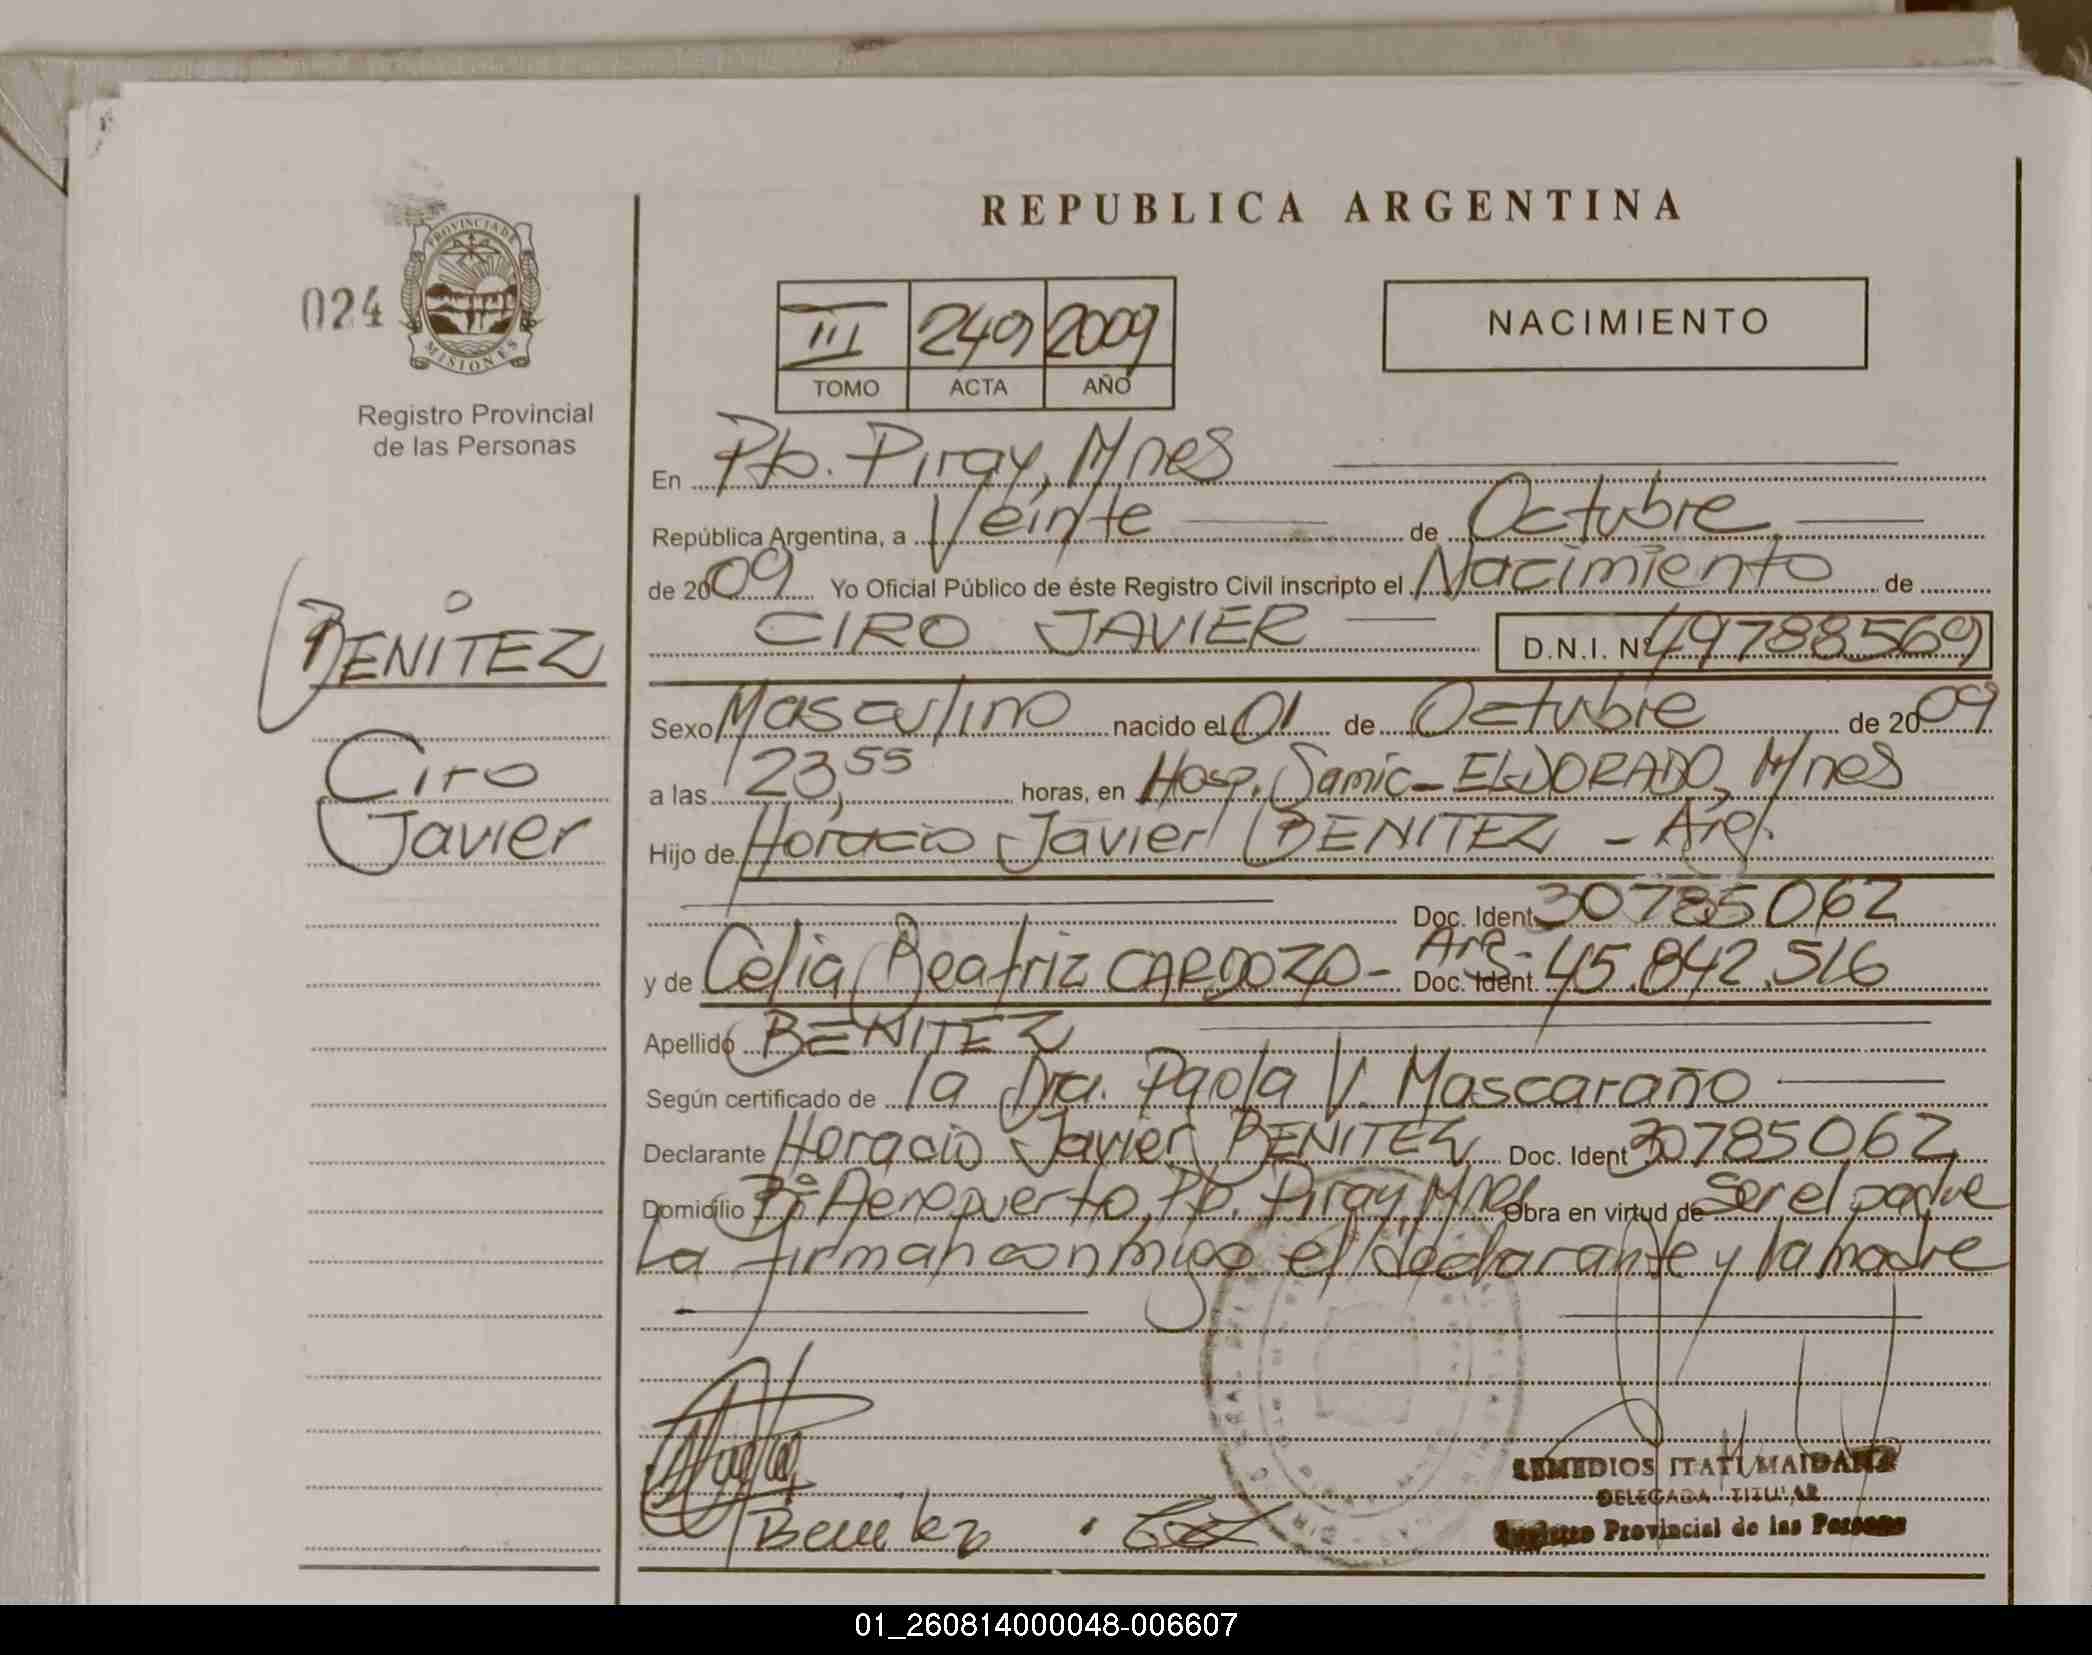 REPUBLICA ARGENTINA
PROVINCIA DE
MISIONES
024
Registro Provincial
de las Personas
III 249 2009
TOMO ACTA AÑO
NACIMIENTO
BENITEZ
Ciro
Javier
En Pto. Piray, Mnes
República Argentina, a Veinte de Octubre
de 2009 Yo Oficial Público de éste Registro Civil inscripto el Nacimiento de
CIRO JAVIER D.N.I. Nº 49788569
Sexo Masculino nacido el 01 de Octubre de 2009
a las 23,55 horas, en Hosp. Samic - ELDORADO, Mnes
Hijo de Horacio Javier BENITEZ - Arg.
Doc. Ident 30785062
y de Celia Beatriz CARDOZO - Arg - Doc. Ident. 45.842.516
Apellido BENITEZ
Según certificado de la Dra. Paola V. Mascaraño
Declarante Horacio Javier BENITEZ Doc. Ident 30785062
Domicilio Bº Aeropuerto, Pto. Piray, Mnes Obra en virtud de Ser el padre
La firman conmigo el declarante y la madre
Benitez
REMEDIOS ITATI MAIDANA
DELEGADA TITULAR
Registro Provincial de las Personas
01_260814000048-006607